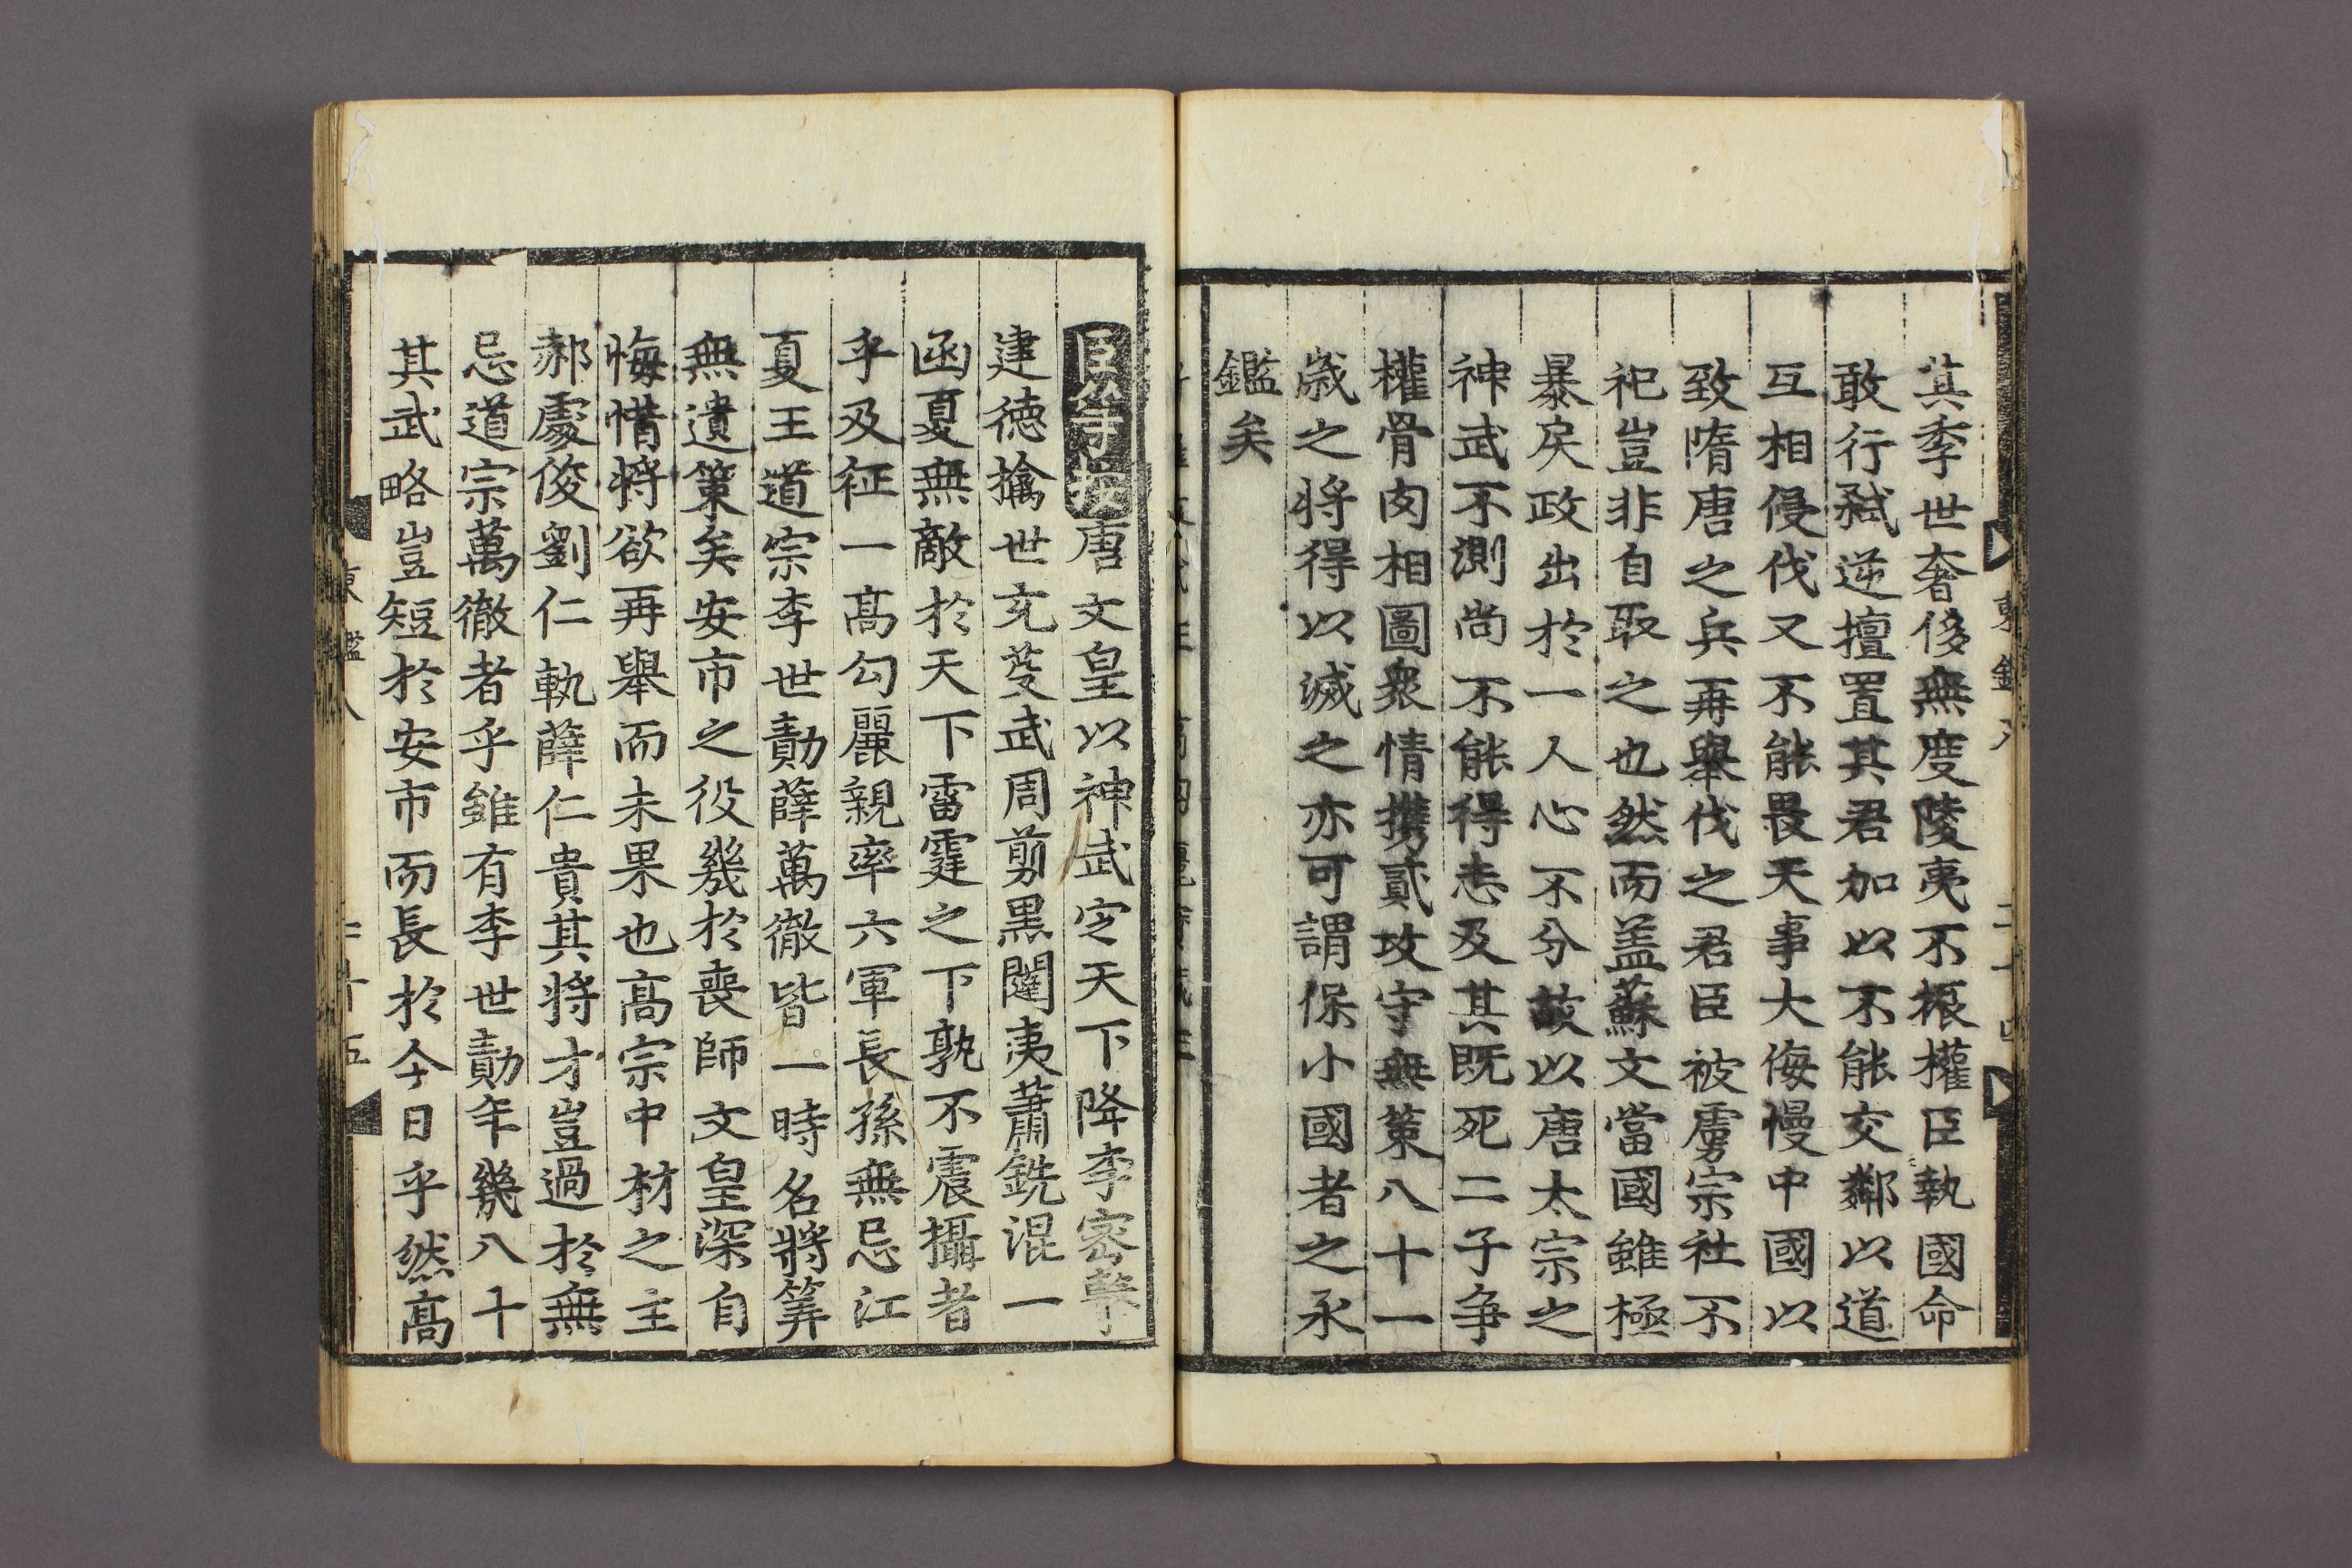 其季世奢侈無度陵夷不振權臣執國命
敢行弑逆擅置其君加以不能交鄰以道
互相侵伐又不能畏天事大侮慢中國以
致隋唐之兵再舉伐之君臣被虜宗社不
祀豈非自取之也然而盖蘇文當國雖極
暴戾政出於一人心不分故以唐太宗之
神武不測尚不能得志及其既死二子争
權骨肉相圖衆情携貳攻守無策八十一
歳之将得以滅之亦可謂保小國者之永
鑑矣
臣等按唐文皇以神武定天下降李密擊
建德擒世充芟武周剪黒闥夷蕭銑混一
函夏無敵於天下雷霆之下孰不震攝者
乎及征一高勾麗親率六軍長孫無忌江
夏王道宗李世勣薛萬徹皆一時名將筭
無遺策矣安市之役幾於喪師文皇深自
悔惜將欲再舉而未果也高宗中材之主
郝處俊劉仁軌薛仁貴其将才豈過於無
忌道宗萬徹者乎雖有李世勣年幾八十
其武略豈短於安市而長於今日乎然高
東鑑八
二十五